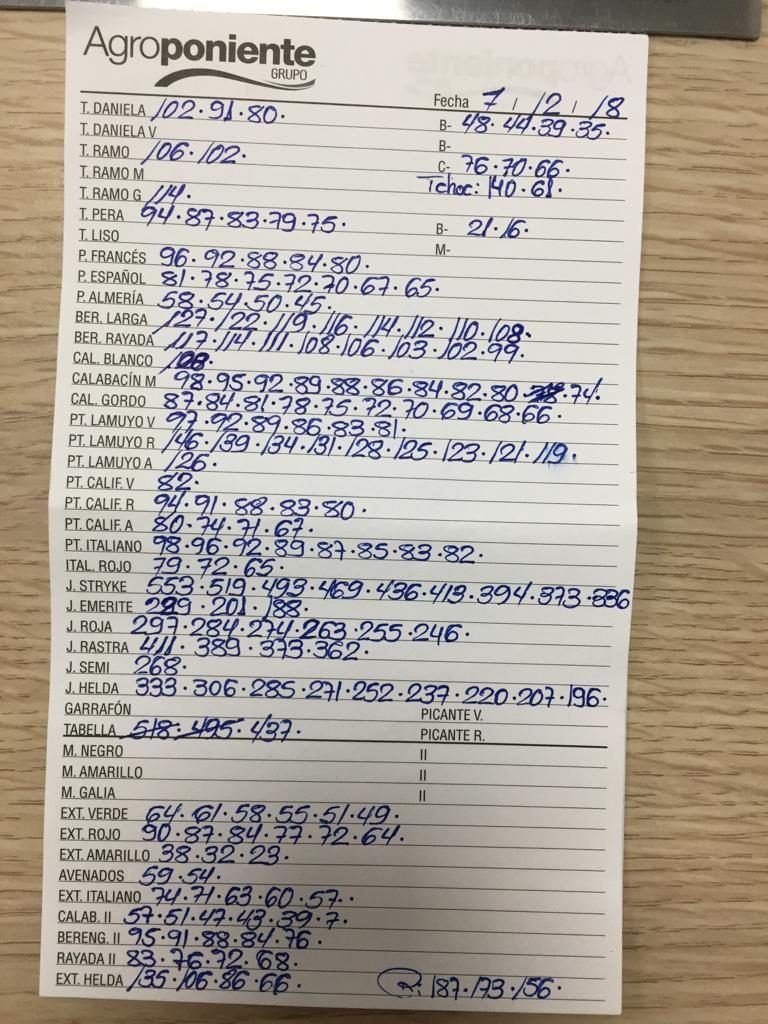 Agroponiente
GRUPO
Fecha 7 / 12 / 18
T. DANELA /02·91·80. B- 48·44·39·35.
T. DANIELA V B-
T. RAMO /06·/02. C- 76·70·66·
T. RAMO M Tchoc: 140·61.
T. RAMO G 114.
T. PERA 94·87·83·79·75. B- 21·16.
T. LISO M-
P. FRANCÉS 96·92·88·84·80.
P. ESPAÑOL 81·78·75·72·70·67·65.
P. ALMERÍA 58·54·50·45.
BER. LARGA 127·122·119·116·114·112·110·108.
BER. RAYADA 117·114·111·108·106·103·102·99.
CAL. BLANCO
CALABACÍN M 98·95·92·89·88·86·84·82·80 74.
CAL. GORDO 87·84·81·78·75·72·70·69·68·66.
PT. LAMUYO V 97·92·89·86·83·81.
PT. LAMUYO R 146·139·134·131·128·125·123·121·119.
PT. LAMUYO A 126.
PT. CALIF. V 82.
PT. CALIF. R 94·91·88·83·80.
PT. CALIF. A 80·74·71·67.
PT. ITALIANO 98·96·92·89·87·85·83·82.
ITAL. ROJO 79·72·65.
J. STRYKE 553·519·493·469·436·413·394·373·336
J. EMERITE 201·188.
J. ROJA 297·284·274·263·255·246.
J. RASTRA 411·389·373·362.
J. SEMI 268.
J. HELDA 333·306·285·271·252·237·220·207·196.
GARRAFÓN PICANTE V.
TABELLA 518·495·437. PICANTE R.
M. NEGRO II
M. AMARILLO II
M. GALIA II
EXT. VERDE 64·61·58·55·51·49.
EXT. ROJO 90·87·84·77·72·64.
EXT. AMARILLO 38·32·23.
AVENADOS 59·54.
EXT. ITALIANO 74·71·63·60·57.
CALAB. II 57·51·47·43·39·7.
BERENG. II 95·91·88·84·76.
RAYADA II 83·76·72·68.
EXT. HELDA 135·106·86·66. R: 187·173·156.